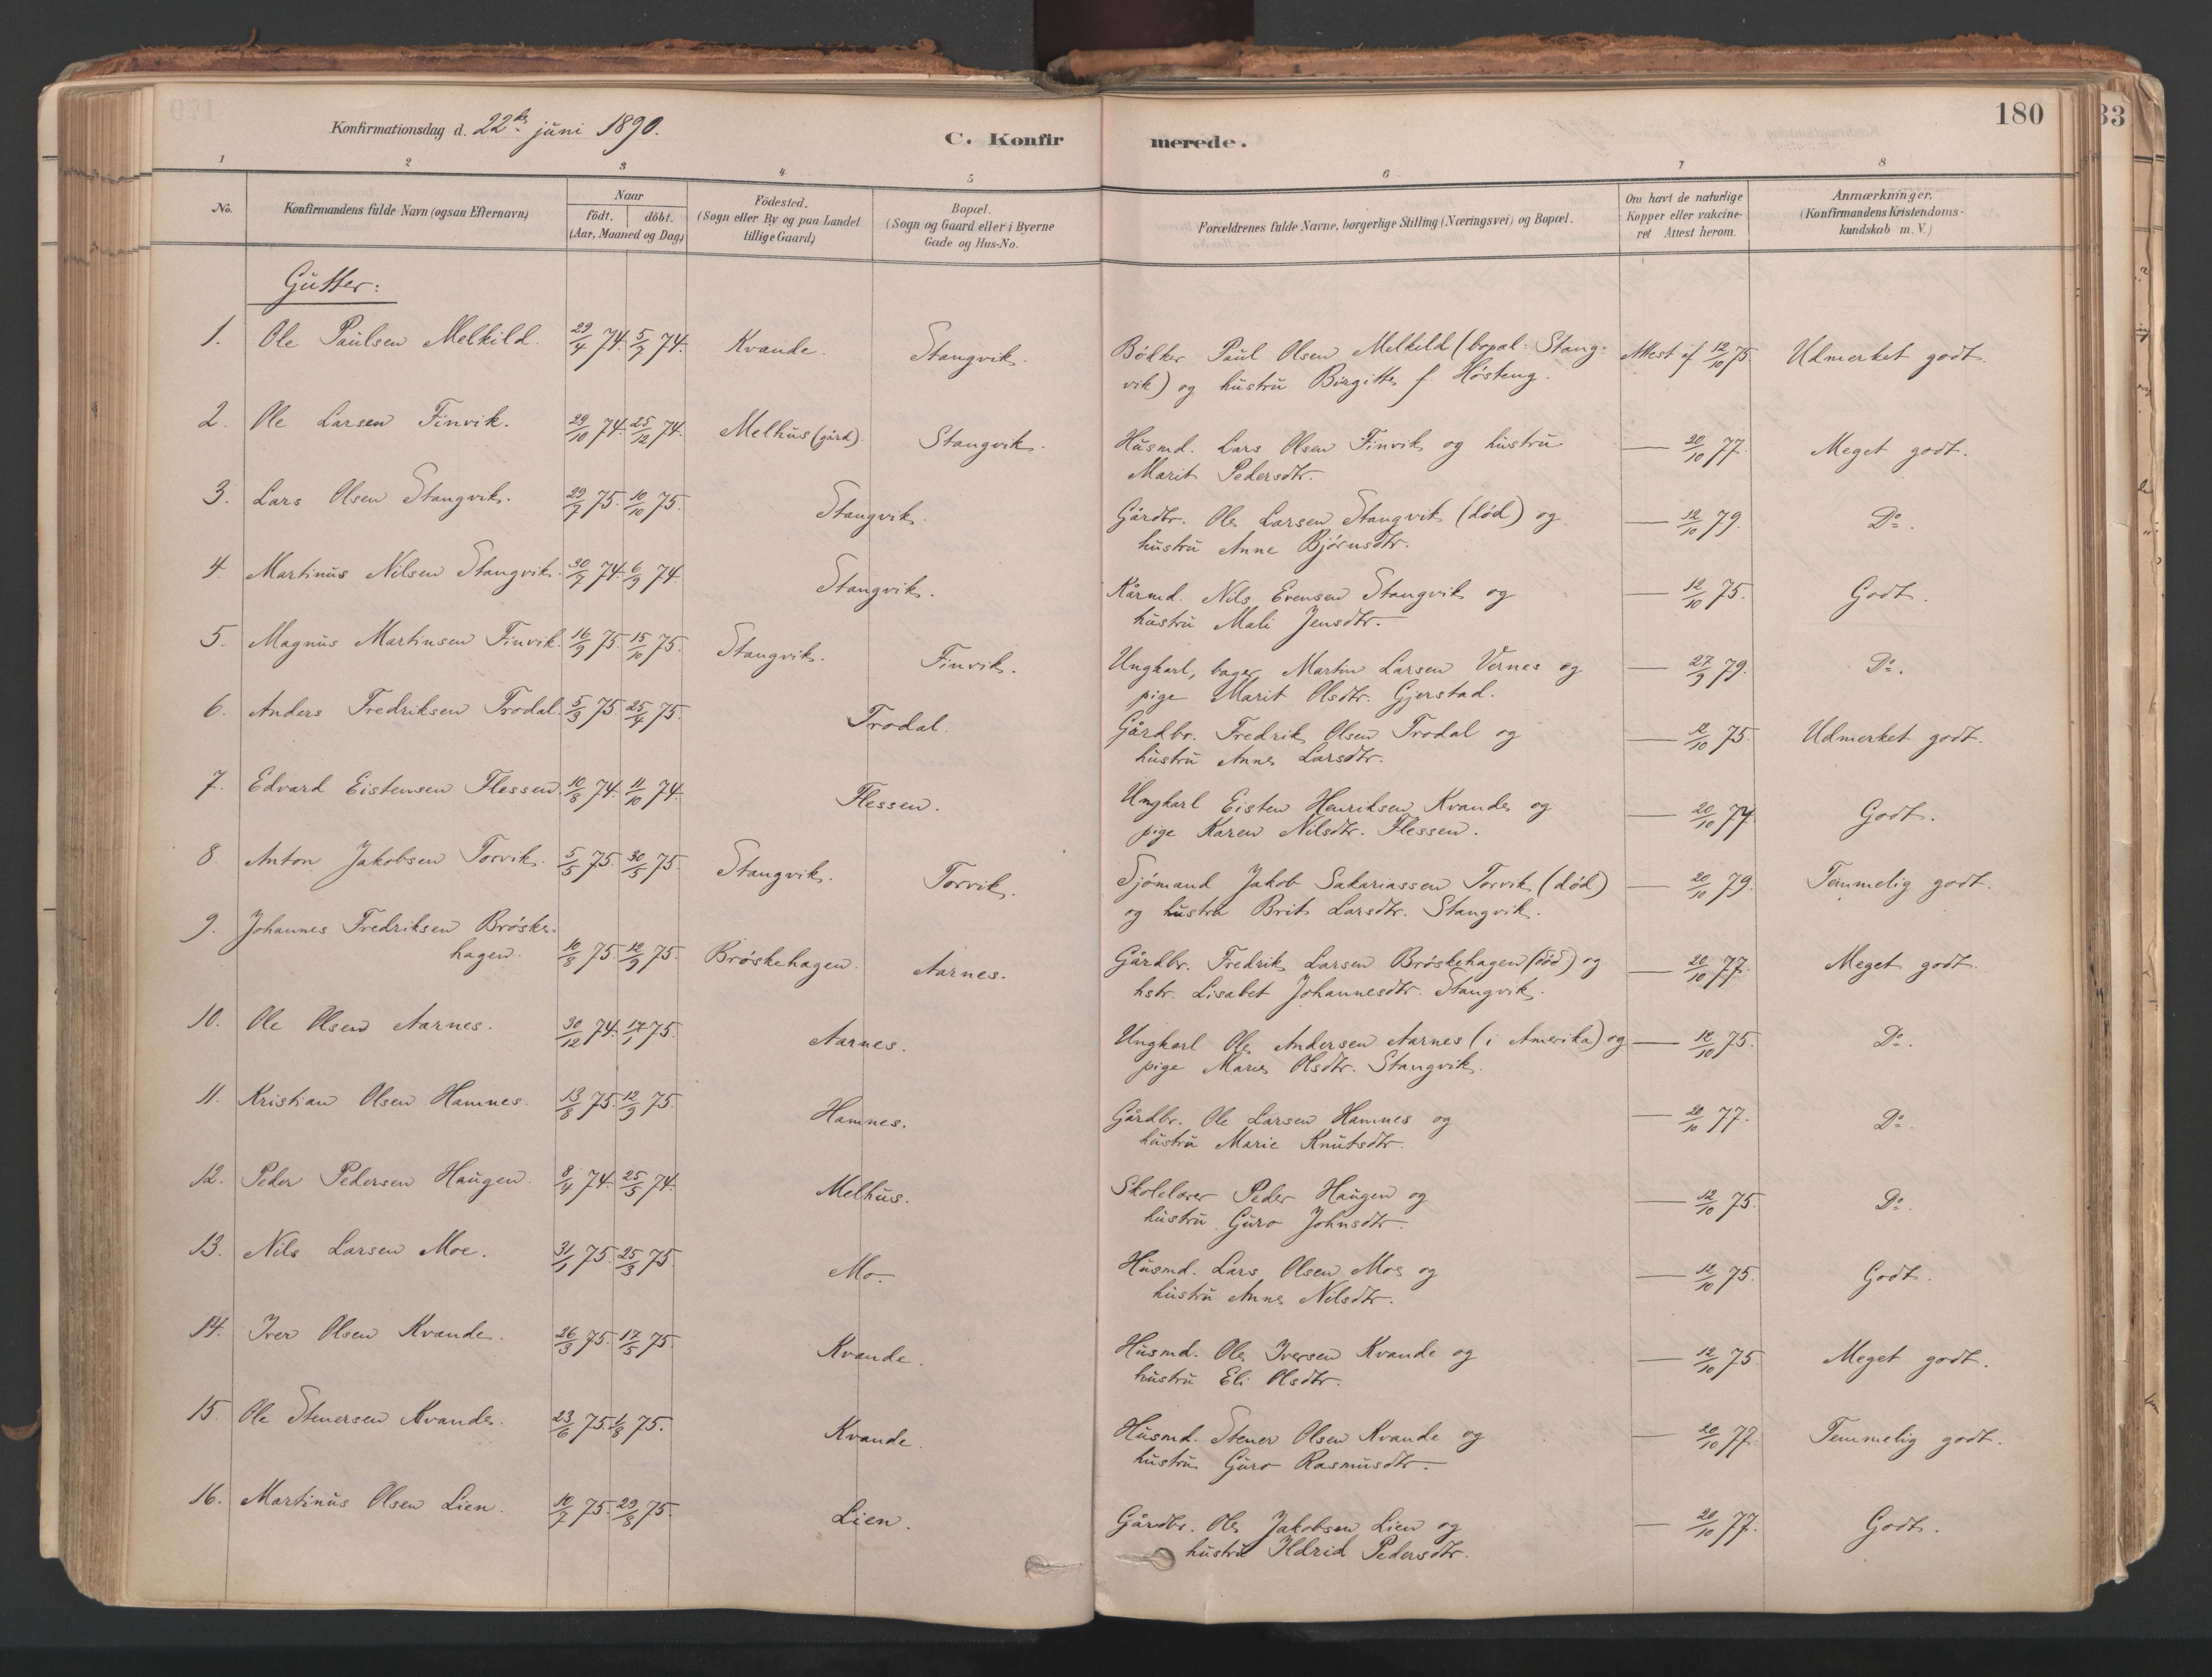 180
33
Konfirmationsdag d. 22de juni 1890.
C. Konfir merede.
1 2 3 4 5 6 7 8
No. | Konfirmandens fulde Navn (ogsaa Efternavn) | Naar födt. döbt. (Aar, Maaned og Dag) | Födested. (Sogn eller By og paa Landet tillige Gaard) | Bopæl. (Sogn og Gaard eller i Byerne Gade og Hus-No. | Forældrenes fulde Navne, borgerlige Stilling (Næringsvei) og Bopæl. | Om havt de naturlige Kopper eller vakcineret Attest herom. | Anmærkninger. (Konfirmandens Kristendomskundskab m. V.)
Gutter:
1. Ole Paulsen Melkild. 29/4 74. 5/7 74. Kvande. Stangvik. Bödker Paul Olsen Melkild (bopæl: Stang- Attest af 12/10 75 Udmerket godt.
vik) og hustru Birgitte f. Høsteng.
2. Ole Larsen Finvik. 29/10 74. 25/12 74. Melhus (gård). Stangvik. Husmd. Lars Olsen Finvik og hustru — 20/10 77. Meget godt.
Marit Pedersdtr.
3. Lars Olsen Stangvik. 29/7 75. 10/10 75. Stangvik. Gårdbr. Ole Larsen Stangvik (död) og — 12/10 79. Do.
hustru Anne Bjørnsdtr.
4. Martinus Nilsen Stangvik. 30/7 74. 6/9 74. Stangvik. Kårmd. Nils Evensen Stangvik og — 12/10 75. Godt.
hustru Mali Jensdtr.
5. Magnus Martinsen Finvik. 16/9 75. 15/10 75. Stangvik. Finvik. Ungkarl, bager Martin Larsen Vernes og — 27/9 79. Do.
pige Marit Olsdtr. Gjerstad.
6. Anders Fredriksen Trodal. 5/3 75. 25/4 75. Trodal. Gårdbr. Fredrik Olsen Trodal og — 12/10 75. Udmerket godt.
hustru Anne Larsdtr.
7. Edvard Eistensen Flessen. 10/8 74. 11/10 74. Flessen. Ungkarl Eisten Henriksen Kvande og — 20/10 77. Godt.
pige Karen Nilsdtr. Flessen.
8. Anton Jakobsen Torvik. 5/5 75. 30/5 75. Stangvik. Torvik. Sjömand Jakob Sakariassen Torvik (död) — 20/10 79. Temmelig godt.
og hustru Brit Larsdtr. Stangvik.
9. Johannes Fredriksen Bröske-
hagen. 10/8 75. 12/9 75. Bröskehagen. Aarnes. Gårdbr. Fredrik Larsen Bröskehagen (död) og — 20/10 77. Meget godt.
hstr. Lisabet Johannesdtr. Stangvik.
10. Ole Olsen Aarnes. 30/12 74. 17/1 75. Aarnes. Ungkarl Ole Andersen Aarnes (i Amerika) og — 12/10 75. Do.
pige Marie Olsdtr. Stangvik.
11. Kristian Olsen Hamnes. 13/8 75. 12/9 75. Hamnes. Gårdbr. Ole Larsen Hamnes og — 20/10 77. Do.
hustru Marie Knutsdtr.
12. Peder Pedersen Haugen. 8/4 74. 25/5 74. Melhus. Skolelærer Peder Haugen og — 12/10 75. Do.
hustru Guro Johnsdtr.
13. Nils Larsen Moe. 31/1 75. 25/3 75. Mo. Husmd. Lars Olsen Moe og — 12/10 75. Godt.
hustru Anne Nilsdtr.
14. Iver Olsen Kvande. 26/3 75. 17/5 75. Kvande. Husmd. Ole Iversen Kvande og — 12/10 75. Meget godt.
hustru Eli Olsdtr.
15. Ole Stenersen Kvande. 23/6 75. 1/8 75. Kvande. Husmd. Stener Olsen Kvande og — 20/10 77. Temmelig godt.
hustru Guro Rasmusdtr.
16. Martinus Olsen Lien. 10/7 75. 29/8 75. Lien. Gårdbr. Ole Jakobsen Lien og — 20/10 77. Godt.
hustru Ildrid Pedersdtr.